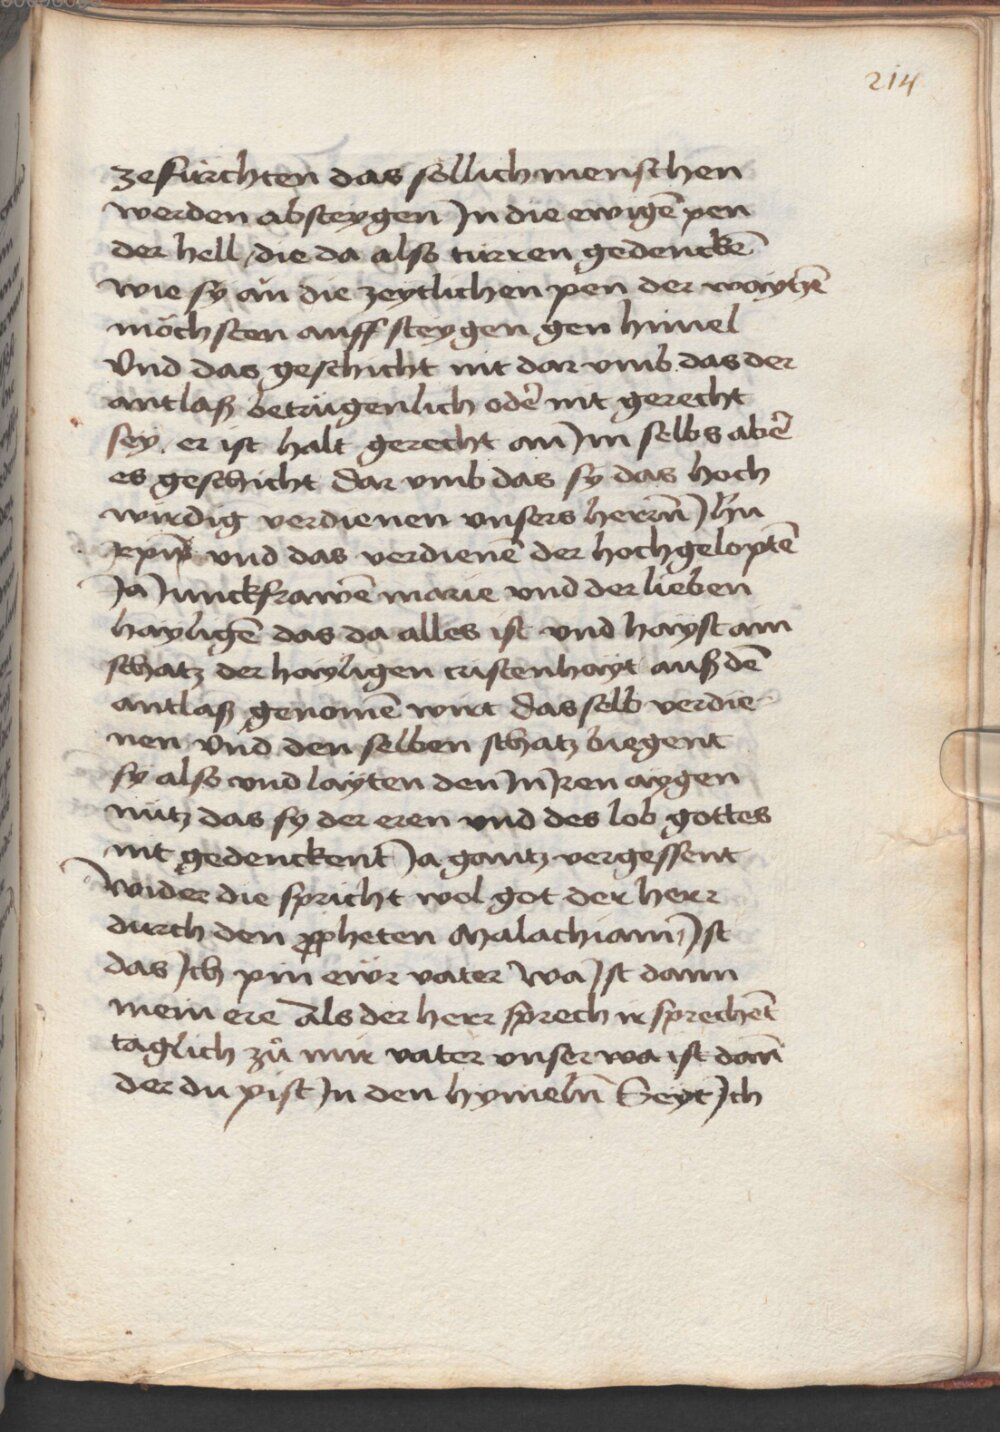 214
zefürchten das söllich menschen
werden absteygen Jn die ewigē pen
der hell / die da also türren gedenckē
wie sy an die zeytlichen pen der waytzē
möchsten auff steygen gen himel
Vnd das geschicht nit dar vmb das der
antlaß betrügenlich oder nit gerecht
sey. er ist halt gerecht an Jm selbs aber
es geschicht dar vmb das sy das hoch
wirdig verdienen vnsers herrn̄ Jhu
xpi vnd das verdienē der hochgeloptē
Ja Junckfrawē marie vnd der lieben
hayligē das da alles ist vnd hayst ain
schatz der hayligen cristenhayt auß dē
antlaß genomē wirt das selb verdie-
nen Vnd den selben schatz biegent
sy also vnd layten den Jn Jren aygen
nutz das sy der eren vnd des lob gottes
nit gedenckent Ja gantz vergessent
Wider die spricht wol got der herr
durch den ppheten Malachiam, Jst
das Jch pin ewr vater Wa Jst dann
mein ere Als der herr sprech ir sprechēt
täglich zů mir vater vnser wa ist dan̄
der du pist Jn den hymeln̄ Seyt Jch